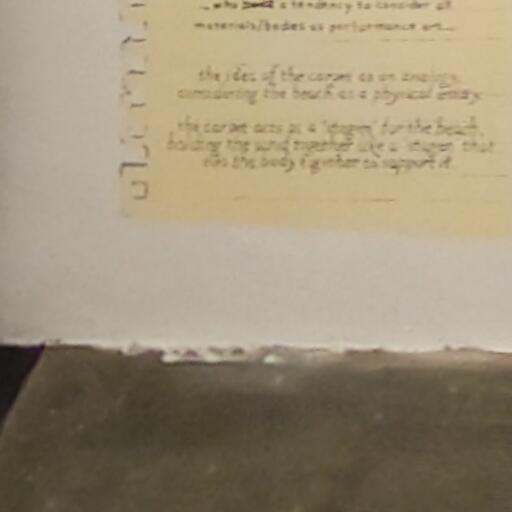 who a tendency to consider all
materials/bodies as performance art...
the idea of the carpet as an analogy,
considering the beach as a physical entity.
the carpet acts as a 'stagen' for the beach,
holding the sand together like a 'stagen' that
the body together to support it.